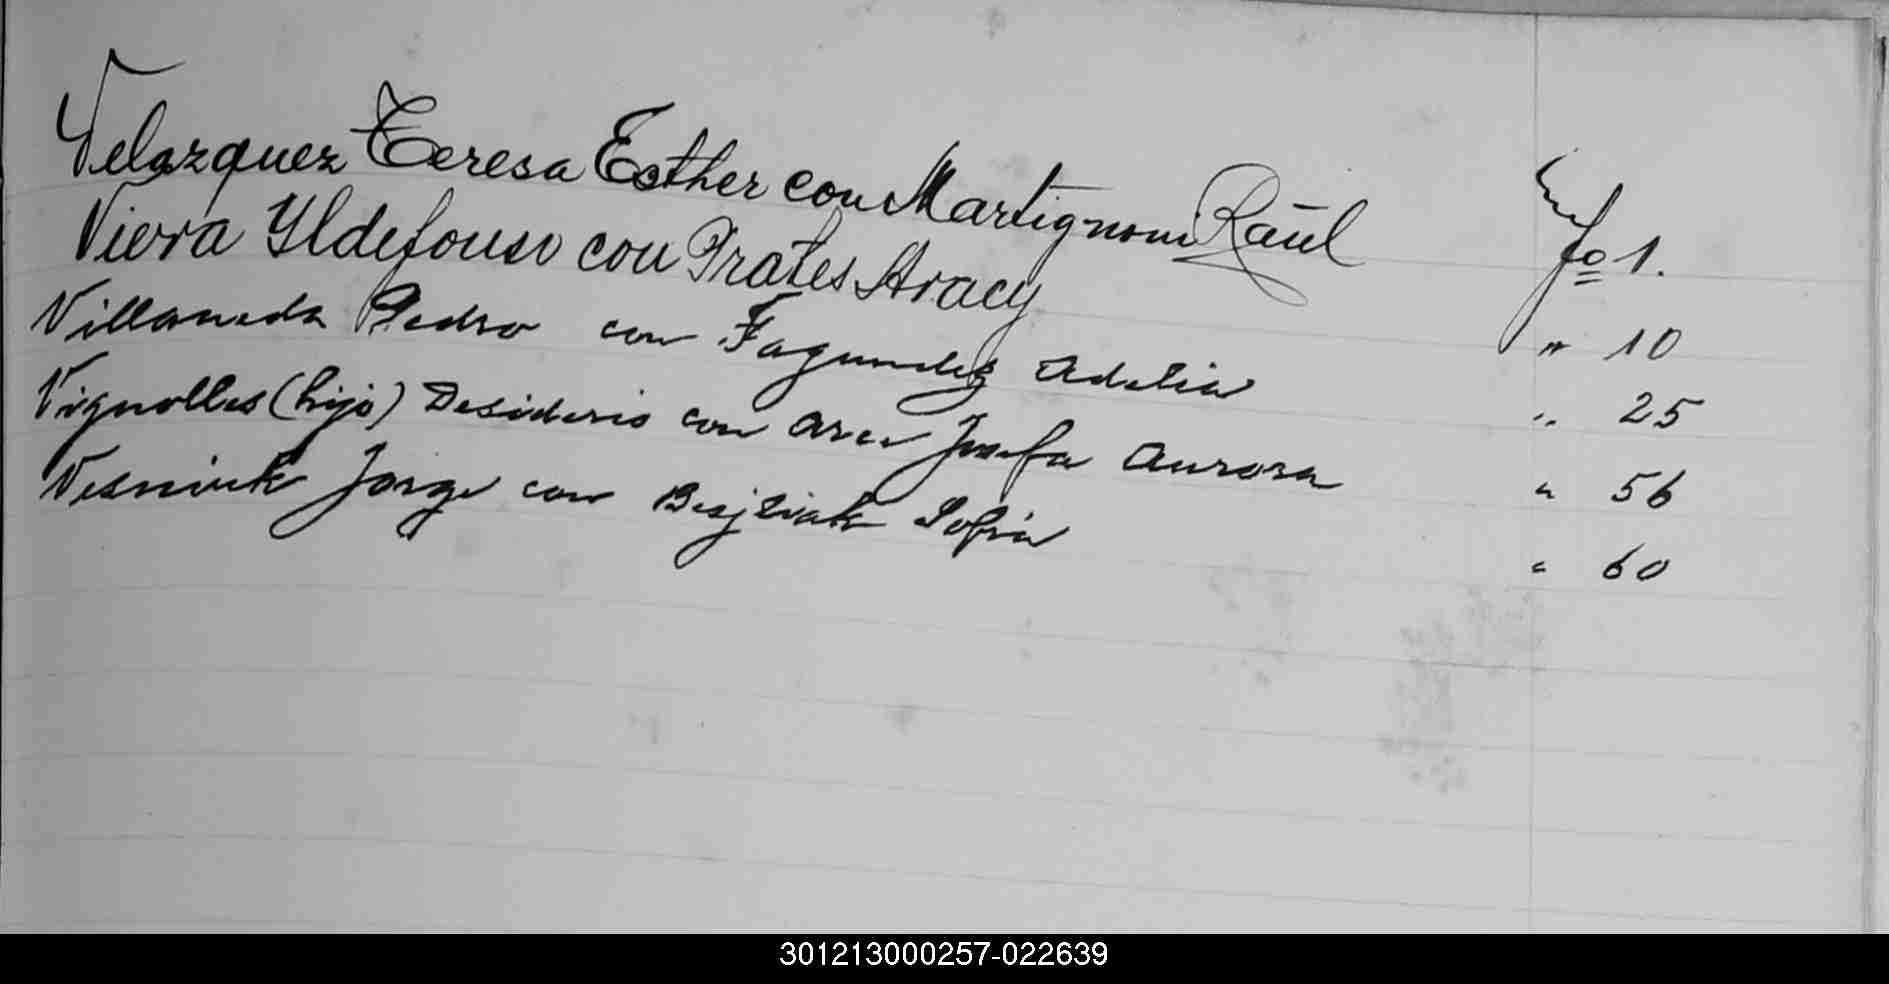 Velazquez Teresa Esther con Martignoni Raúl fo 1.
Viera Ildefonso con Prates Aracy " 10
Villanueda Pedro con Fagundez Adelia " 25
Vignolles (hijo) Desiderio con Arce Josefa Aurora " 56
Jorge con Sofia " 60
301213000257-022639